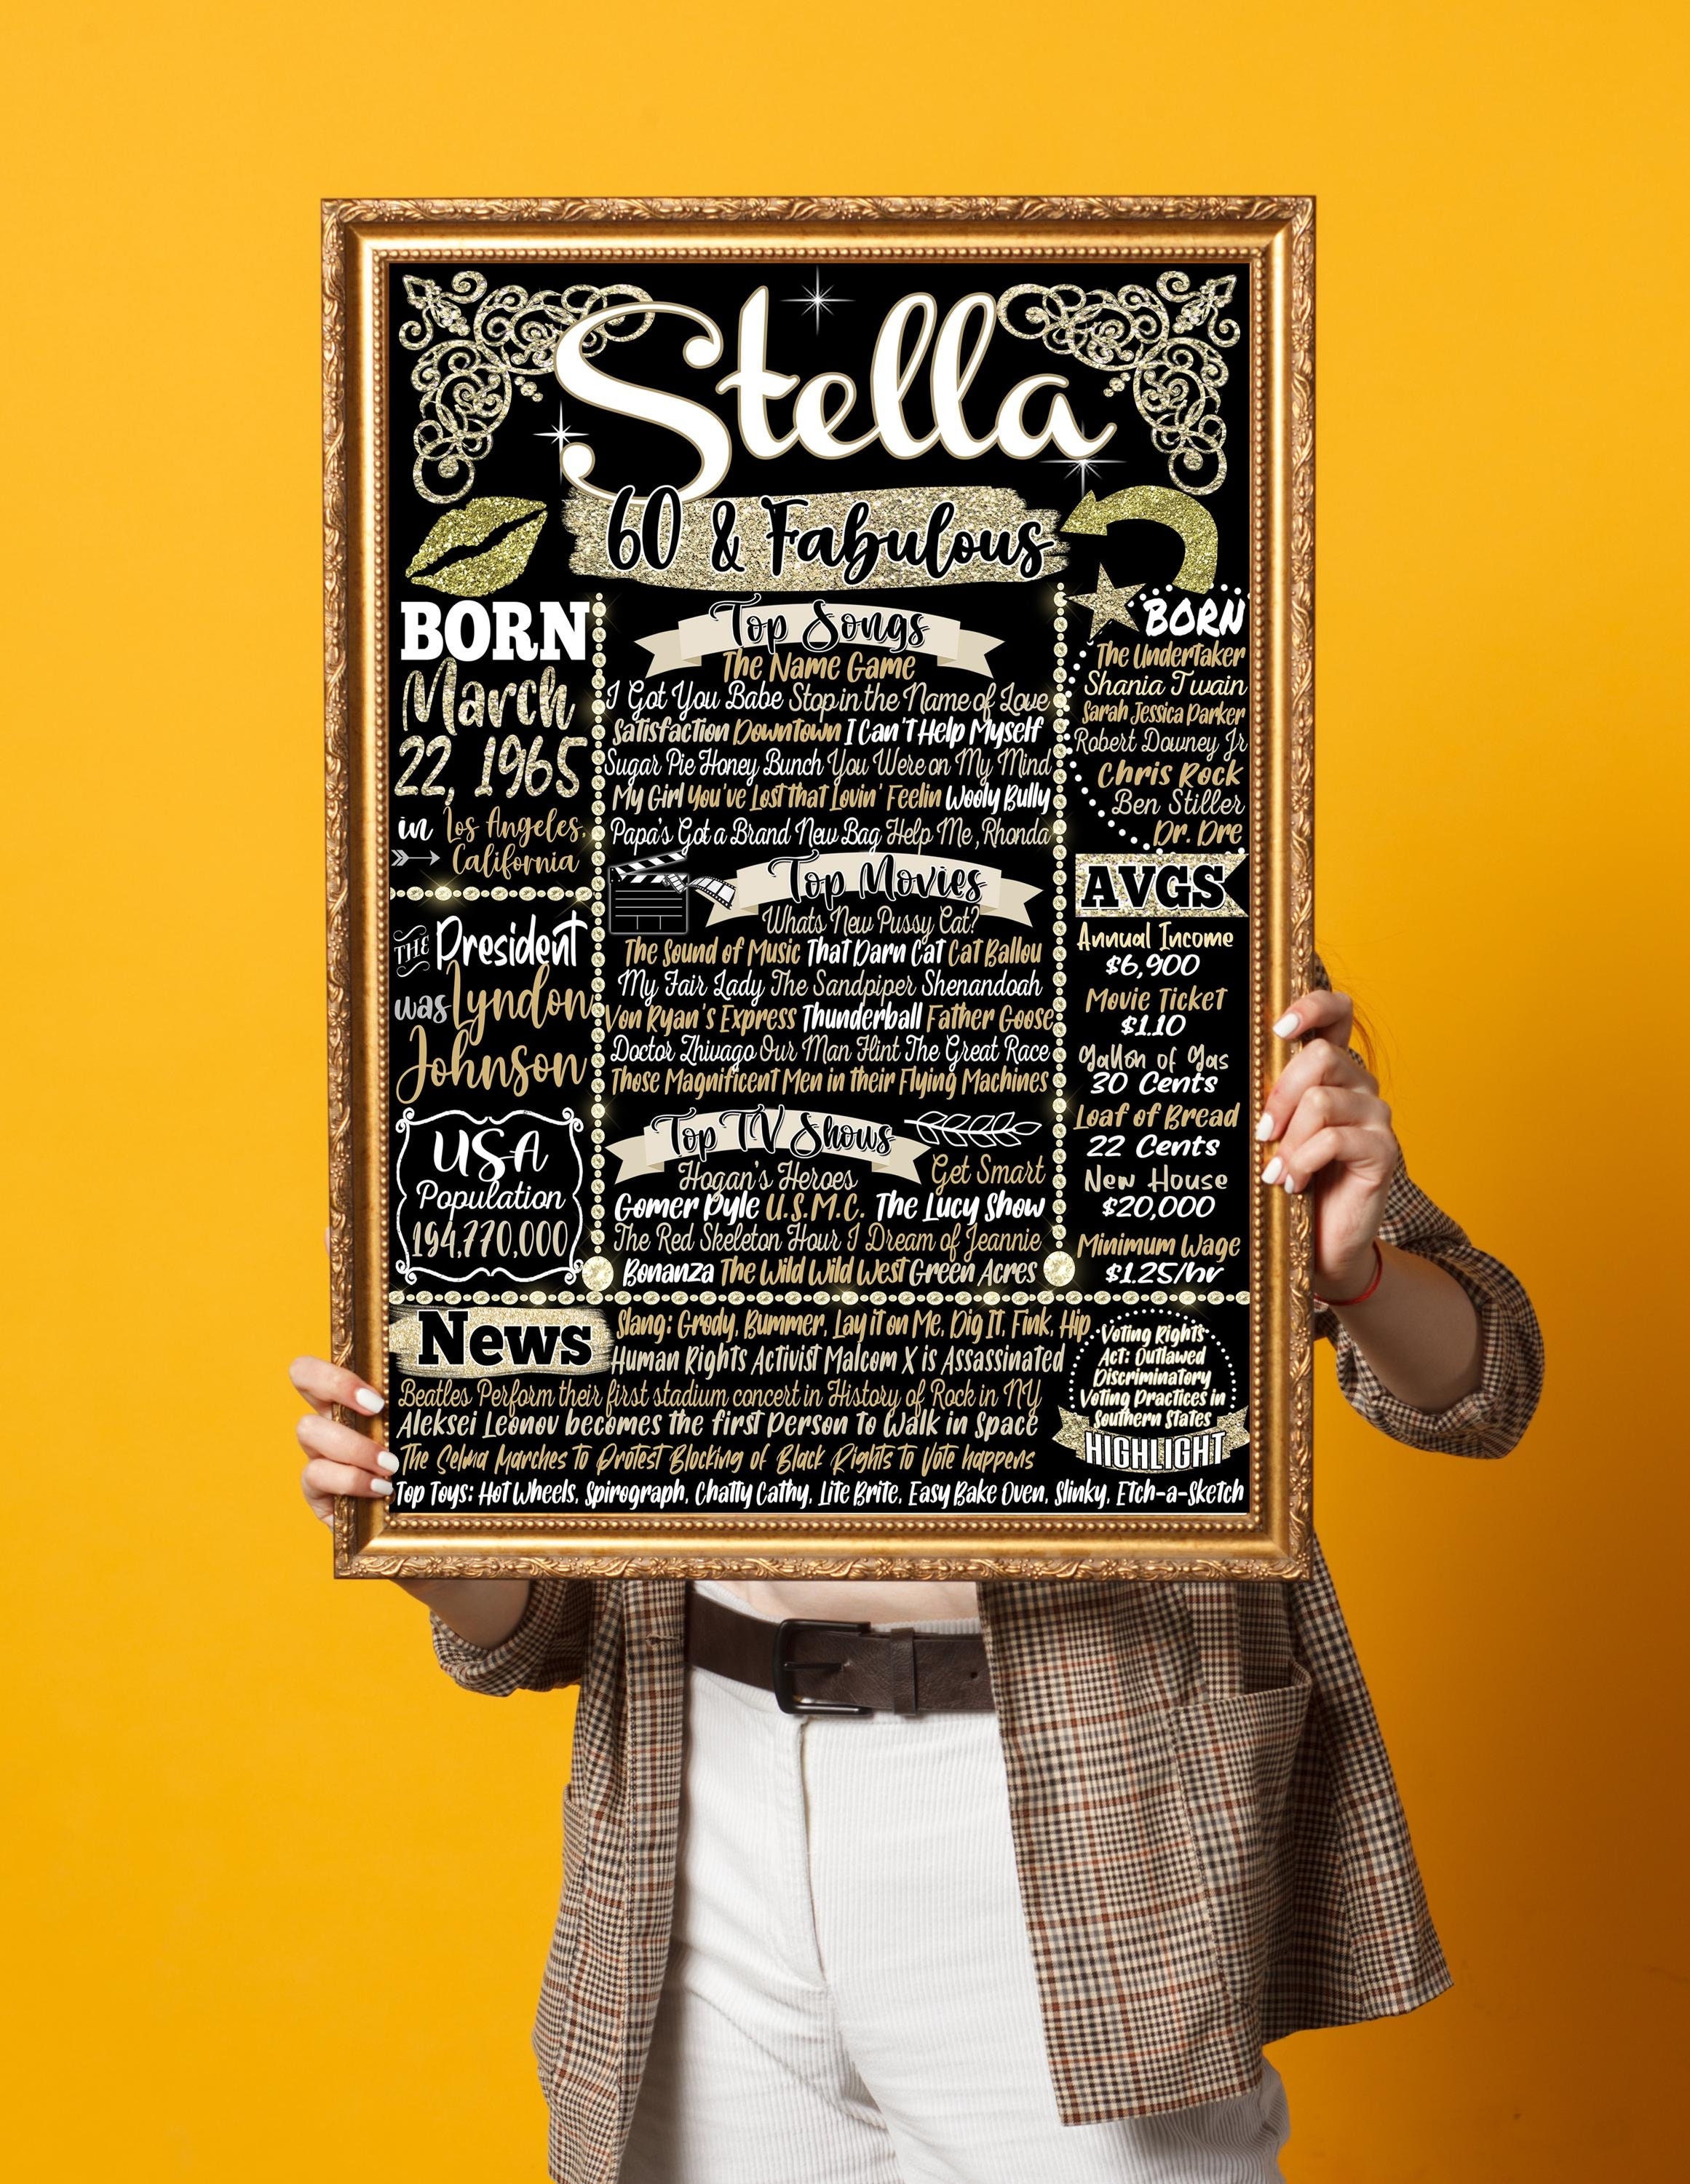 Stella
60 & Fabulous
BORN
March
22, 1965
in Los Angeles,
California
THE President
was Lyndon
Johnson
USA
Population
194,770,000
Top Songs
The Name Game
I Got You Babe Stop in the Name of Love
Satisfaction Downtown I Can't Help Myself
Sugar Pie Honey Bunch You Were on My Mind
My Girl You've Lost that Lovin' Feelin Wooly Bully
Papa's Got a Brand New Bag Help Me, Rhonda
Top Movies
Whats New Pussy Cat?
The Sound of Music That Darn Cat Cat Ballou
My Fair Lady The Sandpiper Shenandoah
Von Ryan's Express Thunderball Father Goose
Doctor Zhivago Our Man Flint The Great Race
Those Magnificent Men in their Flying Machines
Top TV Shows
Hogan's Heroes Get Smart
Gomer Pyle U.S.M.C. The Lucy Show
The Red Skeleton Hour I Dream of Jeannie
Bonanza The Wild Wild West Green Acres
BORN
The Undertaker
Shania Twain
Sarah Jessica Parker
Robert Downey Jr
Chris Rock
Ben Stiller
Dr. Dre
AVGS
Annual Income
$6,900
Movie Ticket
$1.10
Gallon of Gas
30 Cents
Loaf of Bread
22 Cents
New House
$20,000
Minimum Wage
$1.25/hr
News
Slang: Grody, Bummer, Lay it on Me, Dig It, Fink, Hip
Human Rights Activist Malcom X is Assassinated
Beatles Perform their first stadium concert in History of Rock in NY
Aleksei Leonov becomes the first Person to Walk in Space
The Selma Marches to Protest Blocking of Black Rights to Vote happens
Top Toys: Hot Wheels, Spirograph, Chatty Cathy, Lite Brite, Easy Bake Oven, Slinky, Etch-a-Sketch
Voting Rights
Act: Outlawed
Discriminatory
Voting Practices in
Southern States
HIGHLIGHT